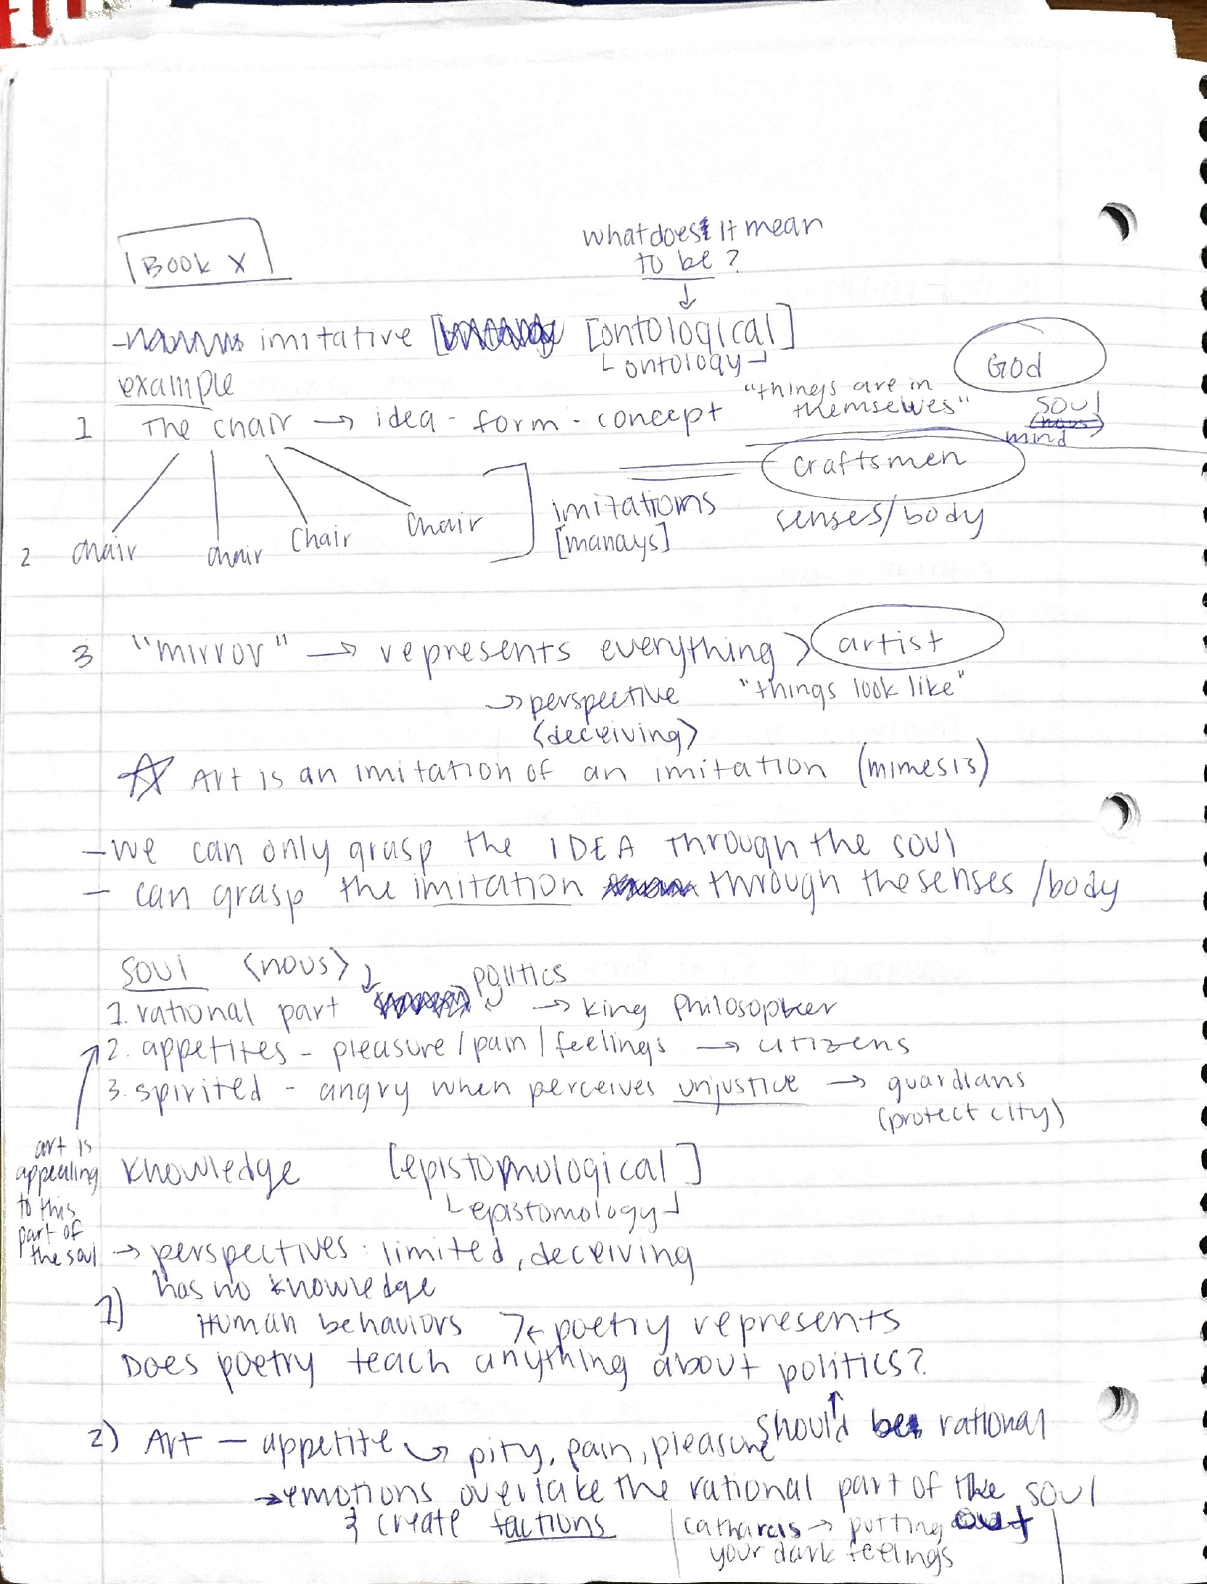 what does it mean
to be?
Book X
- imitative [ontological]
ontology
God
example
"things are in
themselves"
1 The chair → idea - form - concept
soul
(nous)
mind
craftsmen
imitations
senses/body
[manays]
2 chair chair chair chair
3 "mirror" → represents everything > artist
→ perspective "things look like"
(deceiving)
☆ Art is an imitation of an imitation (mimesis)
- we can only grasp the IDEA through the soul
- can grasp the imitation through the senses/body
soul <nous> ↓ politics
1. rational part → king philosopher
2. appetites - pleasure/pain/feelings → citizens
3. spirited - angry when perceives unjustice → guardians
(protect city)
art is
appealing
to this
part of
the soul
knowledge [epistomological]
epistomology
→ perspectives: limited, deceiving
has no knowledge
1) Human behaviors >← poetry represents
Does poetry teach anything about politics?
↑ should be rational
2) Art - appetite → pity, pain, pleasure
→ emotions overtake the rational part of the soul
& create factions
catharcis → putting out
your dark feelings